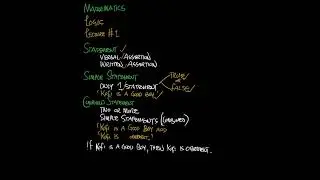 MATHEMATICS
LOGIC
LECTURE #1
STATEMENT
VERBAL ASSERTION
WRITTEN ASSERTION
SIMPLE STATEMENT
TRUE
or
FALSE
ONLY 1 STATEMENT
"KOFI IS A GOOD BOY"
COMPOUND STATEMENT
TWO OR MORE
SIMPLE STATEMENTS (COMBINED)
"KOFI IS A GOOD BOY AND
KOFI IS OBEDIENT."
IF KOFI IS A GOOD BOY, THEN KOFI IS OBEDIENT.